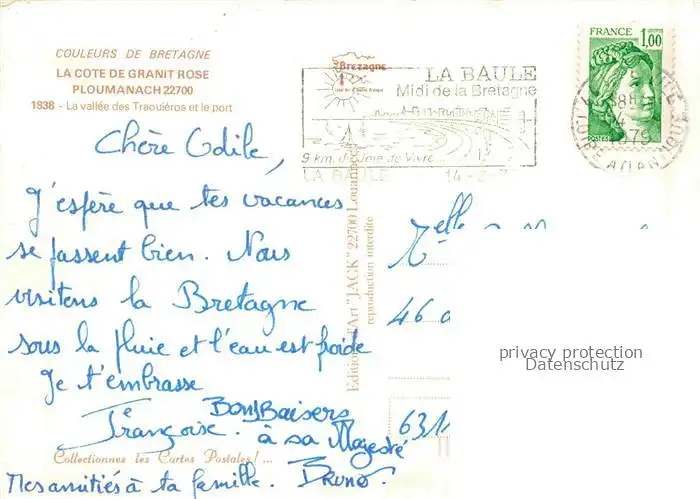 COULEURS DE BRETAGNE
LA COTE DE GRANIT ROSE
PLOUMANACH 22700
1838 - La vallée des Traouiéros et le port
Bretagne
LA BAULE
Midi de la Bretagne
9 km. de Joie de Vivre
LA BAULE 14-8-7
FRANCE 1,00
POSTES
1979
LOIRE ATLANTIQUE
Chère Odile,
J'espère que tes vacances
se passent bien. Nous
visitons la Bretagne
sous la pluie et l'eau est froide
Je t'embrasse
Françoise.
Bons Baisers
à sa Majesté
Bruno.
Mes amitiés à ta famille.
Collectionnez les Cartes Postales!...
Editions d'Art "JACK" 22700 Louannec
reproduction interdite
Melle
46
631
privacy protection
Datenschutz